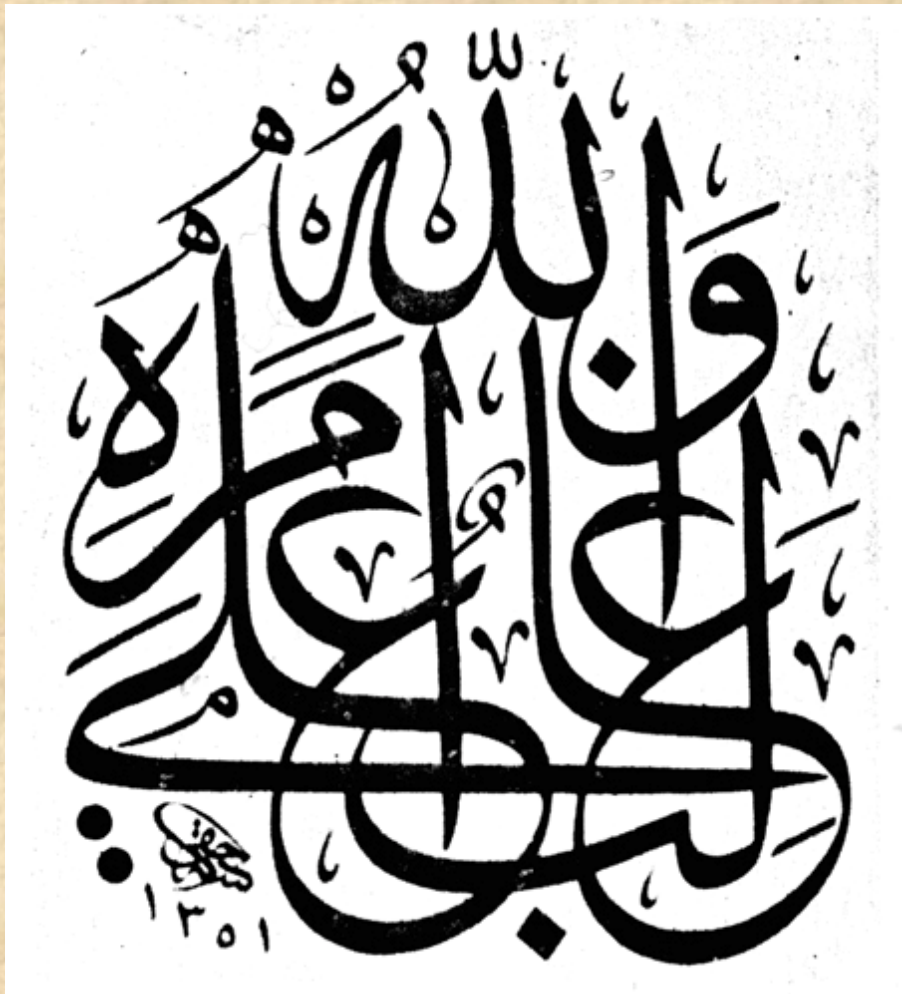 وَاللّهُ غَالِبٌ عَلَى أَمْرِهِ
١٣٥١